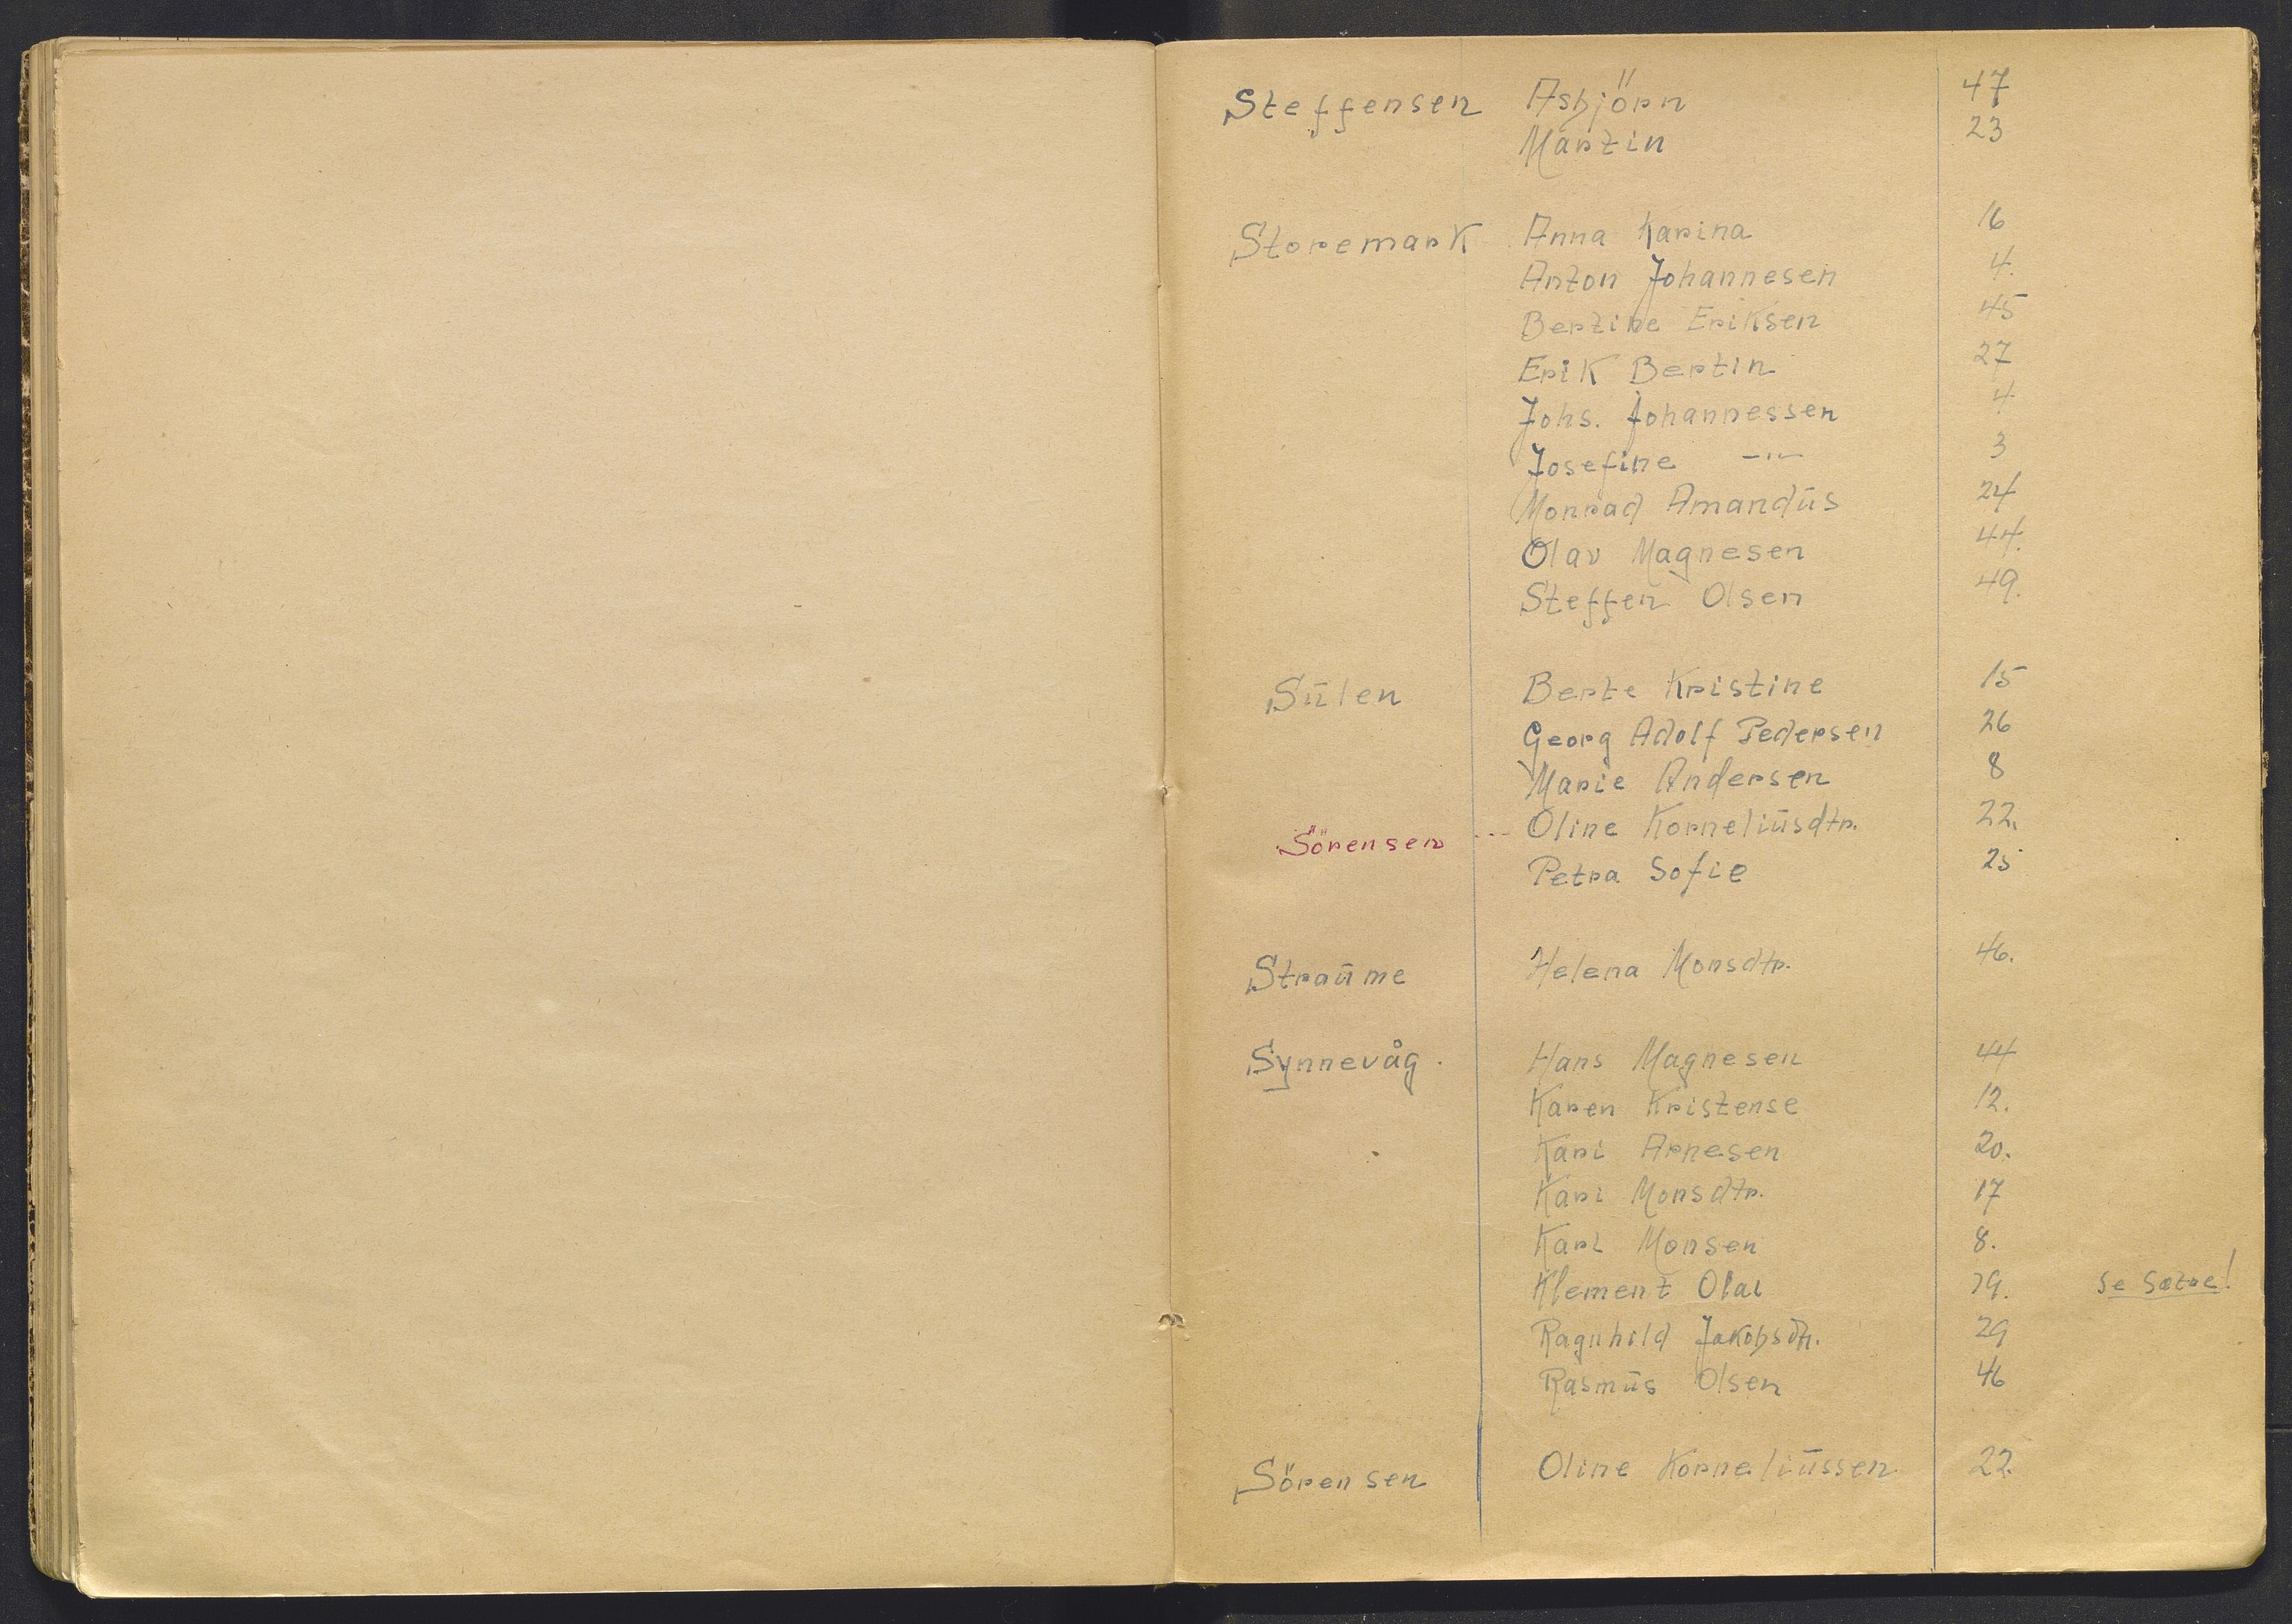 Steffensen Asbjörn 47
Martin 23
Storemark Anna Karina 16
Anton Johannesen 4.
Bertine Eriksen 45
Erik Bertin 27
Johs. Johannessen 4
Josefine -"- 3
Monrad Amandūs 24
Olav Magnesen 44.
Steffen Olsen 49.
Sūlen Berte Kristine 15
Georg Adolf Pedersen 26
Marie Andersen 8
Sörensen --- Oline Korneliūsdtr. 22.
Petra Sofie 25
Straūme Helena Monsdtr. 46.
Synnevåg. Hans Magnesen 44
Karen Kristense 12.
Kari Arnesen 20.
Kari Monsdtr. 17
Karl Monsen 8.
Klement Olai 29. Se Sætre!
Ragnhild Jakobsdtr. 29
Rasmūs Olsen 46
Sörensen Oline Korneliūssen 22.